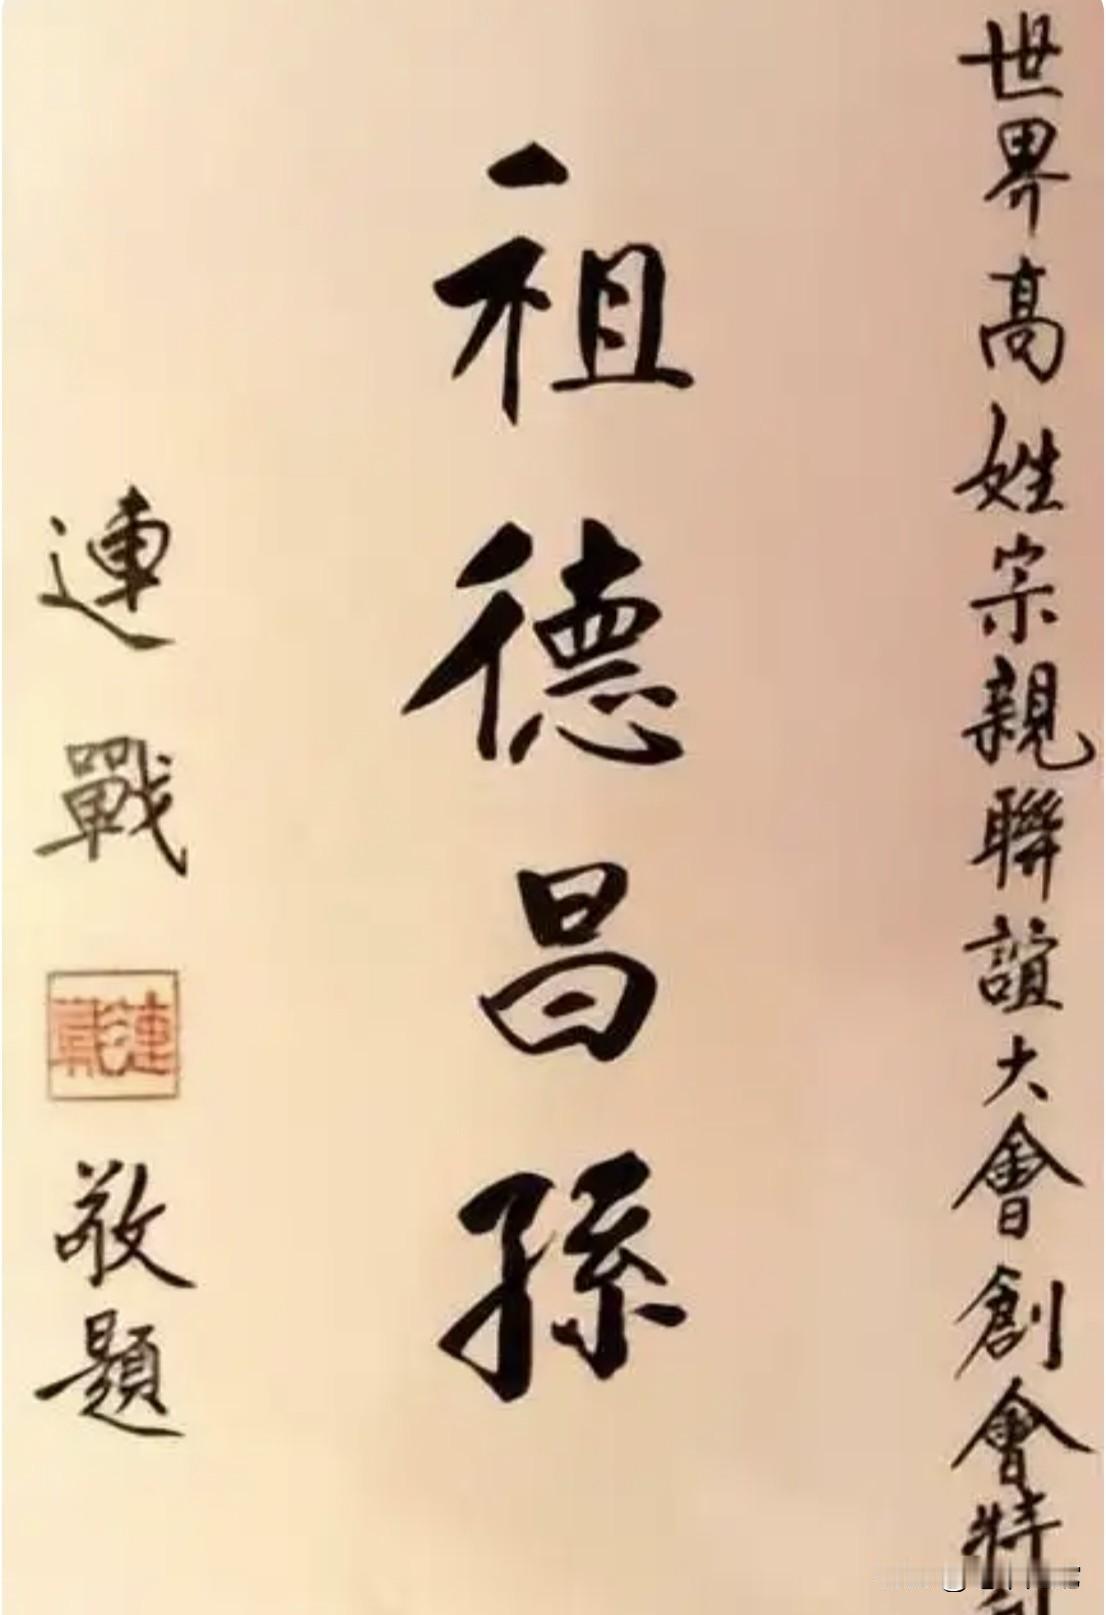 世界高姓宗親聯誼大會創會特
祖德昌孫
連戰
連戰
敬題